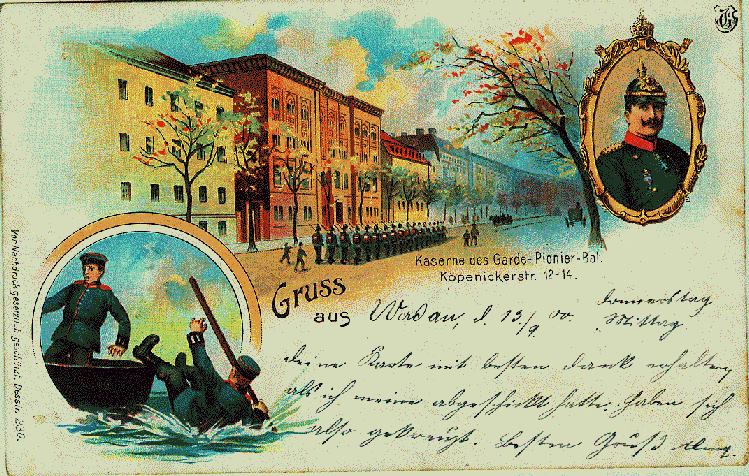 Kaserne des Garde-Pionier-Bat.
Köpenickerstr. 12-14.
Gruss
aus
d. 13/9 00
Donnerstag
Mittag
deine Karte mit besten Dank erhalten
als ich meine abgeschickt hatte. haben sich
also gekreuzt. besten Gruß
Vor Nachdruck gesetzlich geschützt. Dessin 336.